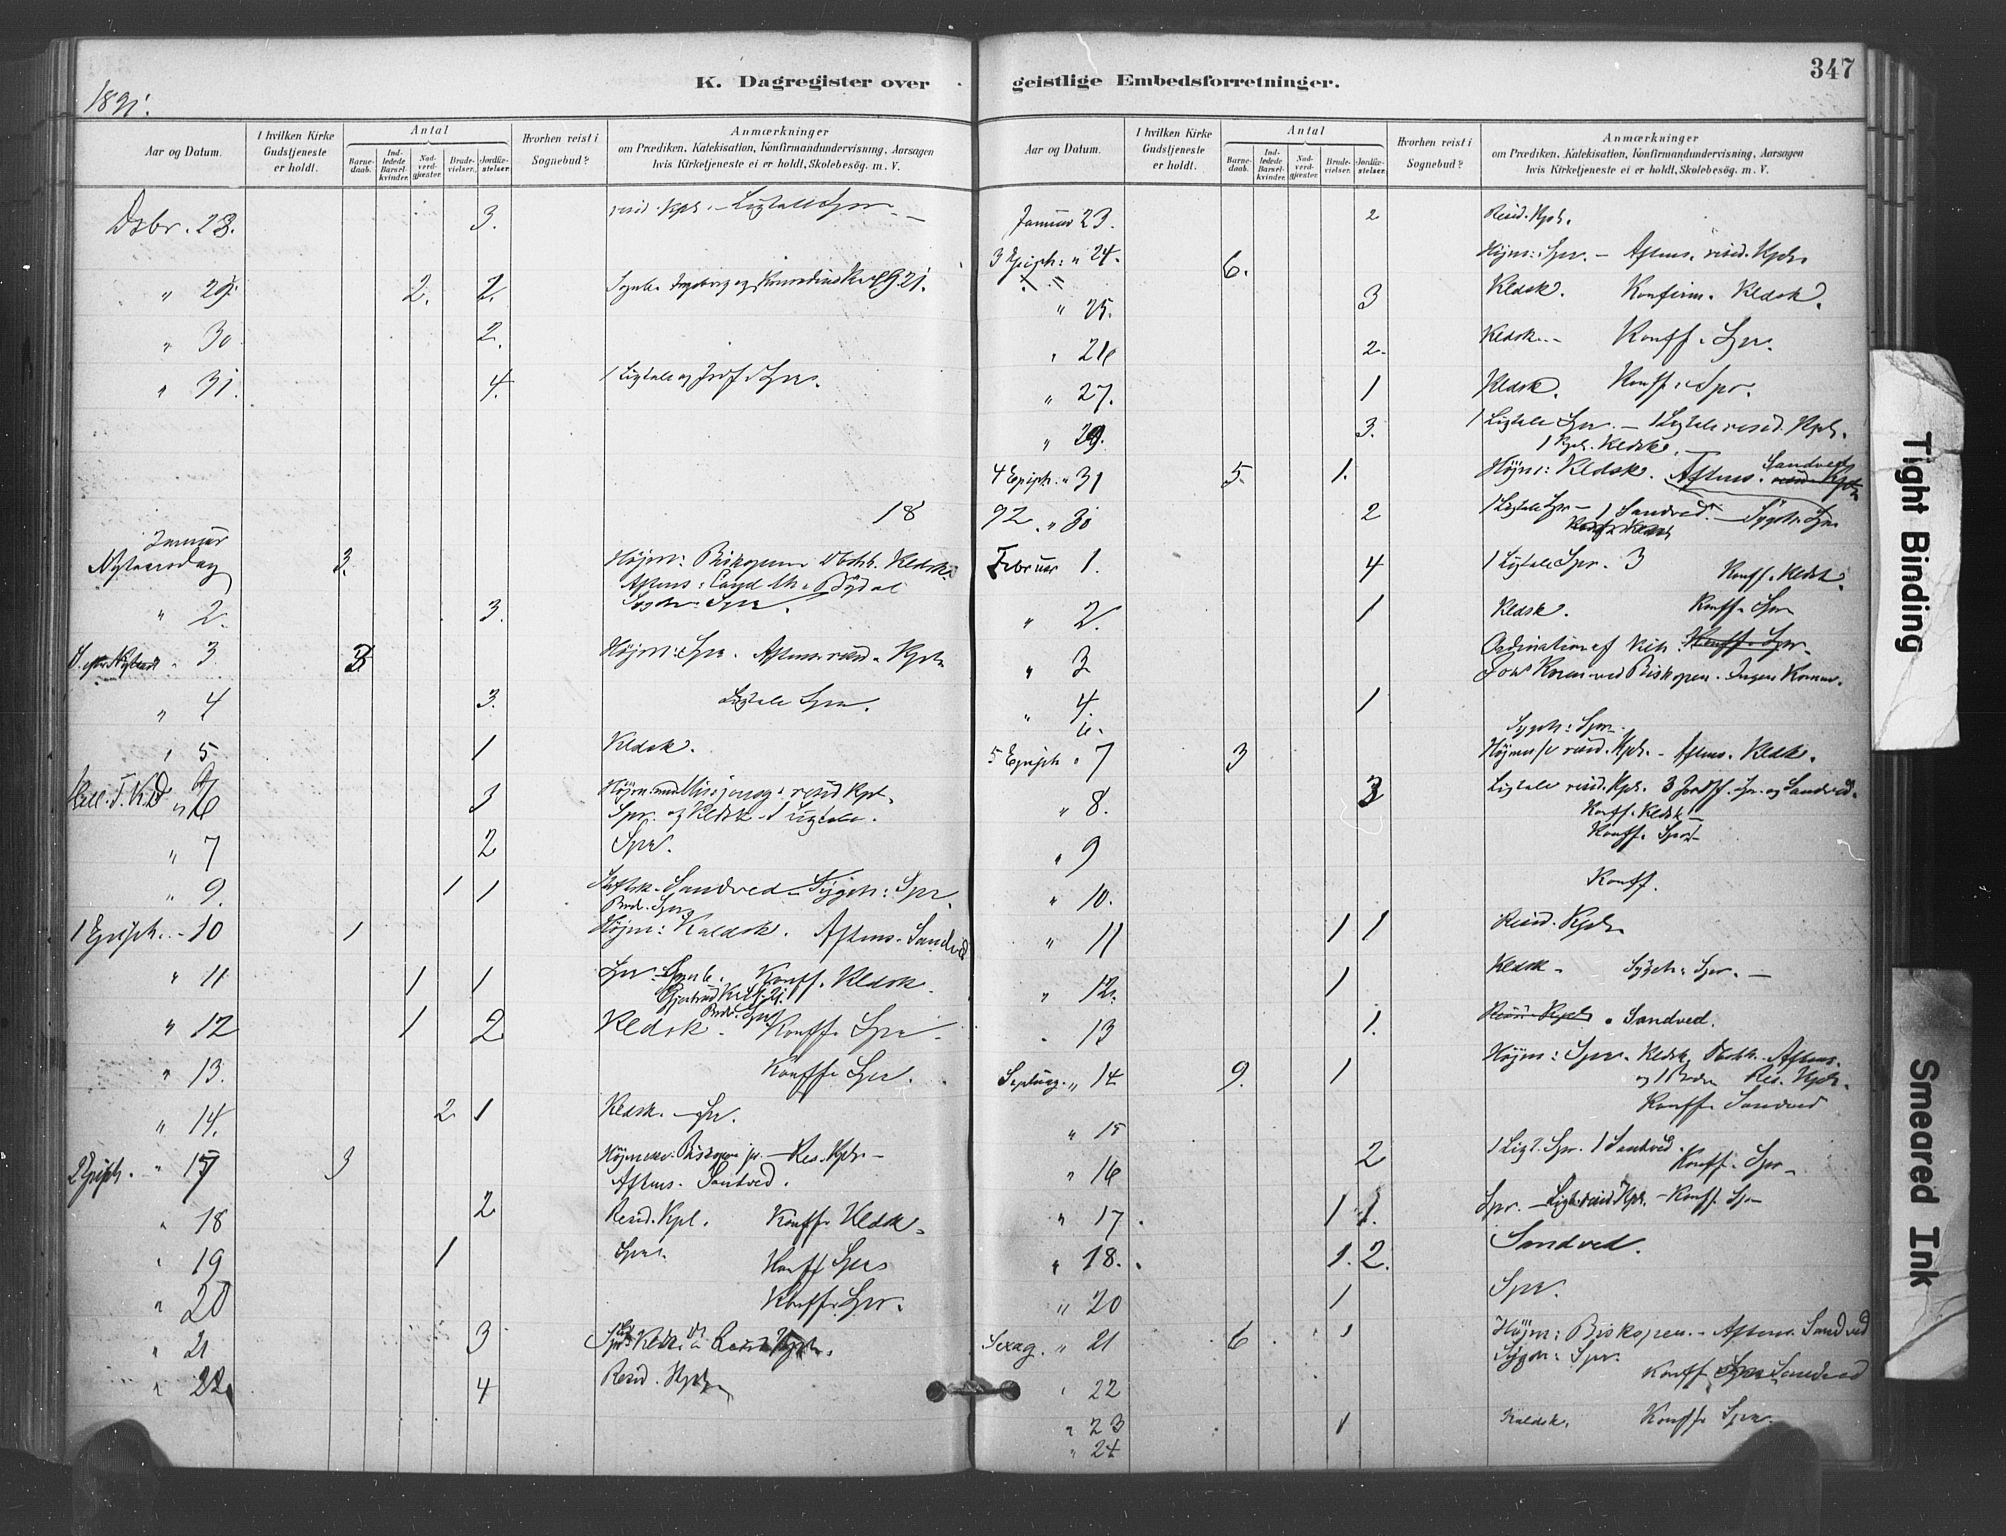 K. Dagregister over
1891.
Aar og Datum.
I hvilken Kirke Gudstjeneste er holdt.
Antal
Barnedaab.
Indledede Barselkvinder.
Nadverdgjæster.
Brudevielser.
Jordfæstelser.
Hvorhen reist i Sognebud?
Anmærkninger
om Prædiken, Katekisation, Konfirmandundervisning, Aarsagen
hvis Kirketjeneste ei er holdt, Skolebesøg. m. V.
Dcbr. 23. 3. resid. Kpl. - Ligtale Spr. -
" 29. 2. 2.
" 30 2.
" 31. 4. 1 Ligtale og Spr.
18
Januar
Nytaarsdag 3. Højm: Biskopen Kldsk.
Aftens: Cand. th.
" 2. 3. Spr.
S. efter Nytaar " 3 3 Højm: Spr. Aftens. resid. Kpl.
" 4 3. Ligtale Spr.
" 5 1 Kldsk.
" 6 3 Højm. resid Kpl.
Spr. og Kldsk - 1 Ligtale.
" 7 2 Spr.
" 9. 1 1 Sandved - Sygeh: Spr.
Brd. Spr
1 Epiph. - 10 1 Højm: Kaldsk. Aftens. Sandved
" 11 1 1 Spr Konff. Kldsk.
" 12 1 2 Kldsk. Konff. Spr
" 13. Konff. Spr.
" 14. 2 1 Kldsk. - Spr.
2 Epiph. " 17 3 Højm: Biskopen - Res. Kpl. -
Aftens. Sandved.
" 18 2 Resid. Kpl. Konff. Kldsk.
" 19 1 Spr. Konff Spr
" 20 Konff. Spr.
" 21 3 Kldsk.
" 22. 4 Resid. Kpl.
geistlige Embedsforretninger.
347
Aar og Datum.
I hvilken Kirke Gudstjeneste er holdt.
Antal
Barnedaab.
Indledede Barselkvinder.
Nadverdgjæster.
Brudevielser.
Jordfæstelser.
Hvorhen reist i Sognebud?
Anmærkninger
om Prædiken, Katekisation, Konfirmandundervisning, Aarsagen
hvis Kirketjeneste ei er holdt, Skolebesøg. m. V.
Januar 23. 2 Resid. Kpl.
3 Epiph: " 24. 6. Højm: Spr. - Aftens. resid. Kpl.
" 25. 3 Kldsk. Konfirm. Kldsk.
" 26 2. Kldsk. - Konff. Spr.
" 27. 1 Kldsk. Konff. Spr.
" 29. 3. 1 Ligtale Spr. - 1 Ligtale resid. Kpl.
Kldsk.
4 Epiph. " 31 5. 1. Højm: Kldsk. Aftens. Sandved
92. " 30 2 1 Ligtale Spr - 1 Sandved - Sygeh. Spr
Februar 1. 4 1 Ligtale Spr. 3 Konff. Kldsk.
" 2. 1 Kldsk. Konff. Spr
" 3 Ordination af Konff. Spr.
ved Biskopen. Ingen
" 4. 1
6. Sygeh: Spr.
5 Epiph " 7 3 Højmesse resid. Kpl. - Aftens. Kldsk.
" 8. 3 Ligtale resid. Kpl. 3 Jordf. Spr. og Sandved.
Konff. Kldsk -
" 9 Konff. Spr -
" 10. Konff.
" 11 1 1 Resid. Kpl.
" 12. 1 Kldsk - Sygeh. Spr. -
" 13 1. Resid. Kpl. Sandved.
Septuag. " 14 9. 1 Højm: Spr. Kldsk. Aftens.
og 1 Res. Kpl.
" 15 Konff. Sandved
" 16 2 1 Ligt. Spr. 1 Sandved. Konff. Spr -
" 17. 1 1. Spr. - Ligtale resid Kpl. - Konff. Spr
" 18. 1. 2. Sandved.
" 20 1 Spr.
Sexag. " 21 6 1 Højm: Biskopen. - Aftens. Sandved
Sygeh: Spr.
" 22 Konff Sandved
" 23 1 Kaldsk. Konff. Spr.
" 24
Tight Binding
Smeared Ink